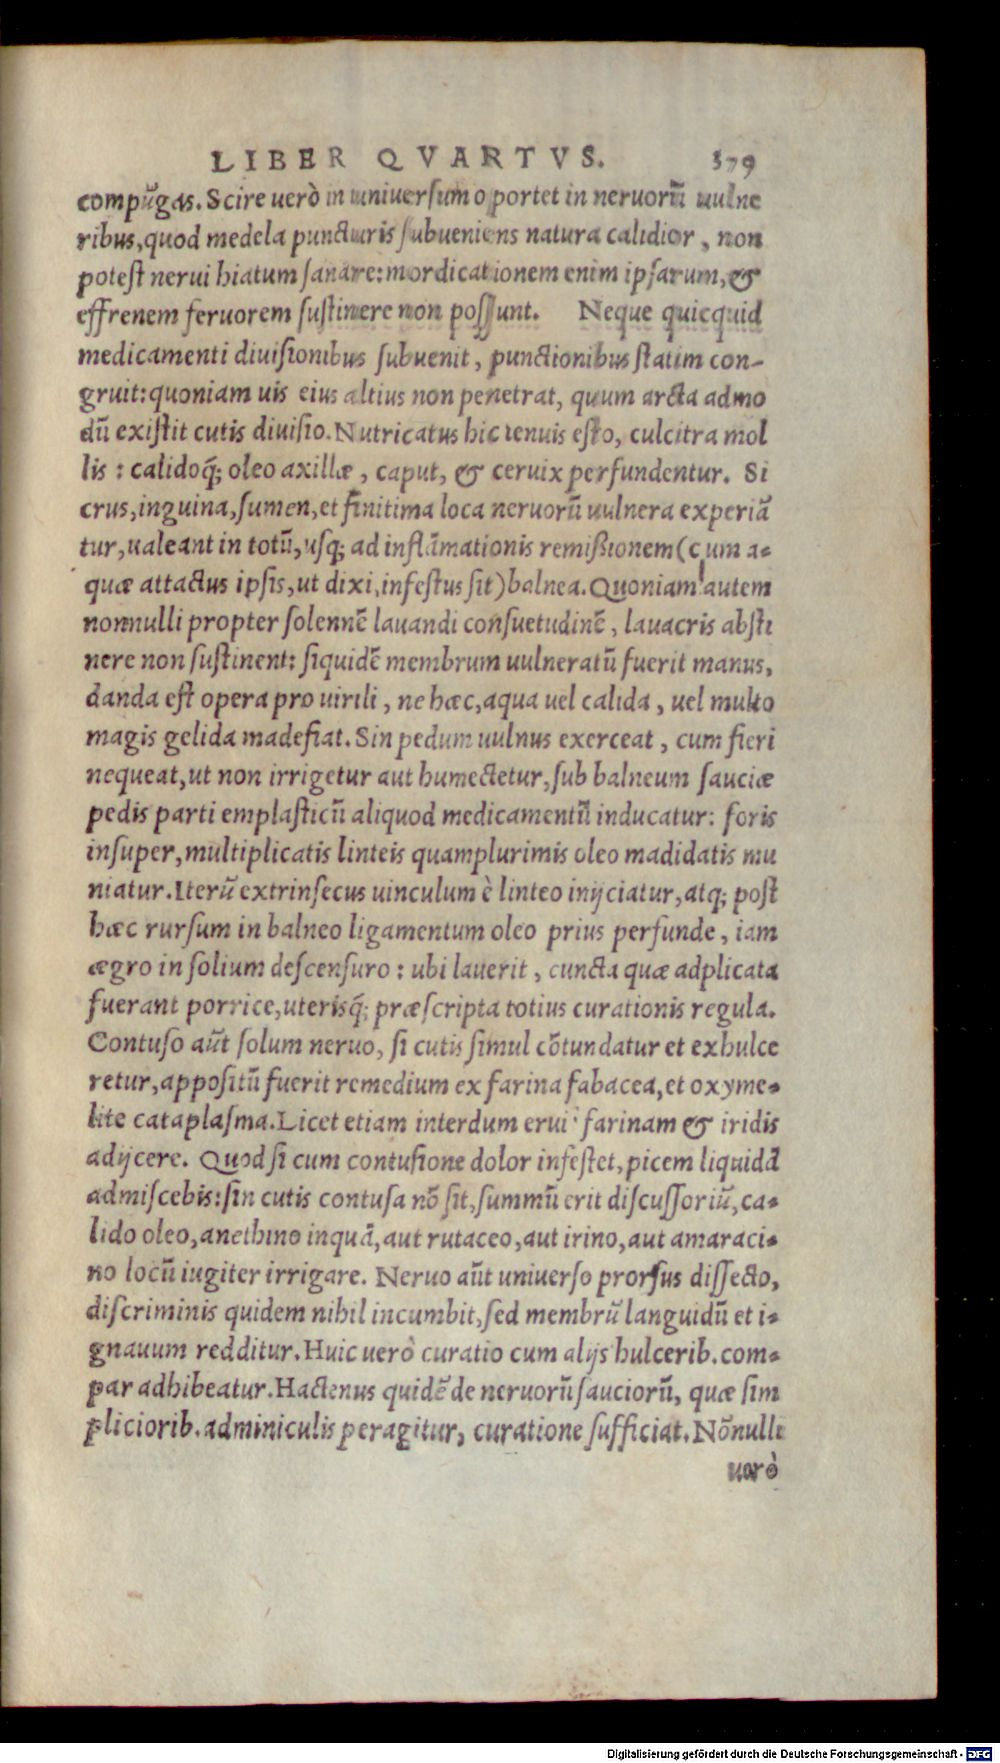 LIBER QVARTVS. 379
compũgas. Scire uerò in uniuersum oportet in neruorũ uulne
ribus, quod medela puncturis subueniens natura calidior, non
potest nerui hiatum sanare: mordicationem enim ipsarum, &
effrenem feruorem sustinere non possunt. Neque quicquid
medicamenti diuisionibus subuenit, punctionibus statim con-
gruit: quoniam uis eius altius non penetrat, quum arcta admo
dũ existit cutis diuisio. Nutricatus hic tenuis esto, culcitra mol
lis: calidoq́; oleo axillæ, caput, & ceruix perfundentur. Si
crus, inguina, sumen, et finitima loca neruorũ uulnera experiã
tur, ualeant in totũ, usq; ad inflãmationis remißionem (cum a-
quæ attactus ipsis, ut dixi, infestus sit) balnea. Quoniam autem
nonnulli propter solennẽ lauandi consuetudinẽ, lauacris absti
nere non sustinent: siquidẽ membrum uulneratũ fuerit manus,
danda est opera pro uirili, ne hæc, aqua uel calida, uel multo
magis gelida madefiat. Sin pedum uulnus exerceat, cum fieri
nequeat, ut non irrigetur aut humectetur, sub balneum sauciæ
pedis parti emplasticũ aliquod medicamentũ inducatur: foris
insuper, multiplicatis linteis quamplurimis oleo madidatis mu
niatur. Iterũ extrinsecus uinculum è linteo inijciatur, atq; post
hæc rursum in balneo ligamentum oleo prius perfunde, iam
ægro in solium descensuro: ubi lauerit, cuncta quæ adplicata
fuerant porrice, uterisq́; præscripta totius curationis regula.
Contuso aũt solum neruo, si cutis simul cõtundatur et exhulce
retur, appositũ fuerit remedium ex farina fabacea, et oxyme-
lite cataplasma. Licet etiam interdum erui farinam & iridis
adijcere. Quod si cum contusione dolor infestet, picem liquidã
admiscebis: sin cutis contusa nõ sit, summũ erit discussoriũ, ca-
lido oleo, anethino inquã, aut rutaceo, aut irino, aut amaraci-
no locũ iugiter irrigare. Neruo aũt uniuerso prorsus dissecto,
discriminis quidem nihil incumbit, sed membrũ languidũ et i-
gnauum redditur. Huic uerò curatio cum alijs hulcerib. com-
par adhibeatur. Hactenus quidẽ de neruorũ sauciorũ, quæ sim
pliciorib. adminiculis peragitur, curatione sufficiat. Nõnulli
uerò
Digitalisierung gefördert durch die Deutsche Forschungsgemeinschaft - DFG